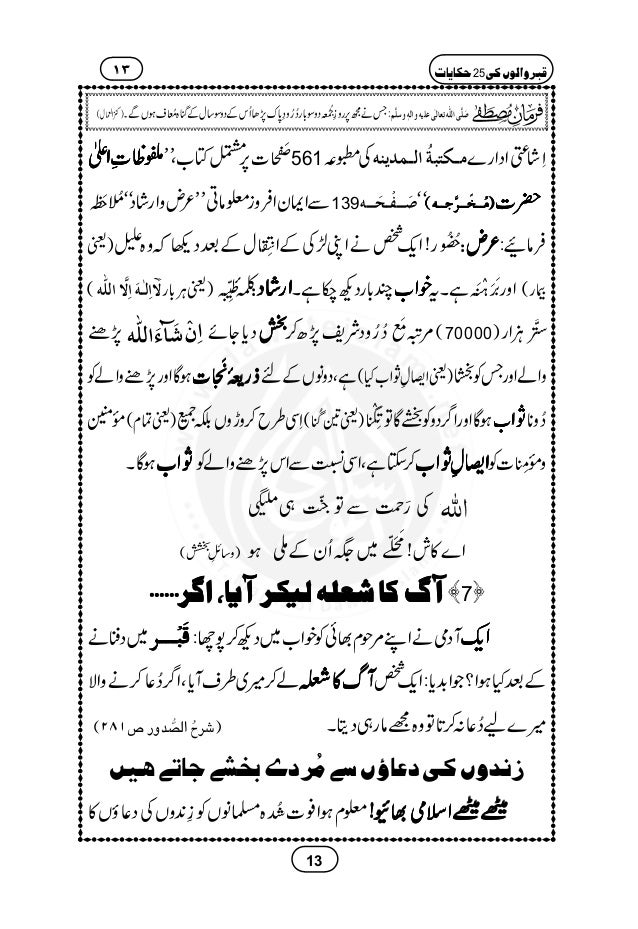 قبر والوں کی 25 حکایات
۱۳
فرمانِ مُصطَفٰے صلَّی اللہ تعالٰی علیہ واٰلہٖ وسلَّم: جس نے مجھ پر روزِ جُمعہ دو سو بار دُرُودِ پاک پڑھا اُس کے دو سو سال کے گناہ مُعاف ہوں گے۔ (کنز العمال)
اِشاعتی ادارے مکتبۃُ الْمدینہ کی مطبوعہ 561 صَفْحات پر مُشتمل کتاب، ’’ملفوظاتِ اعلیٰ
حضرت (مُخَرَّجہ)‘‘ صَفْحَہ 139 سے ایمان افروز معلوماتی ’’عرض و ارشاد‘‘ مُلاحَظہ
فرمائیے: عرض: حُضُور! ایک شخص نے اپنی لڑکی کے انتِقال کے بعد دیکھا کہ وہ علیل (یعنی
بیمار) اور بَرَہْنہ ہے۔ یہ خواب چند بار دیکھ چکا ہے۔ ارشاد: کلمۂ طیِّبہ (یعنی ہر بار لَآ اِلٰہَ اِلَّا اللہ)
ستَّر ہزار (70000) مرتبہ مَع دُرُود شریف پڑھ کر بخش دیا جائے اِنْ شَآءَ اللہ پڑھنے
والے اور جس کو بخشا (یعنی ایصالِ ثواب کیا) ہے، دونوں کے لئے ذریعۂ نَجات ہوگا اور پڑھنے والے کو
دُونا ثواب ہوگا اور اگر دو کو بخشے گا تو تِگنا (یعنی تین گُنا) اِسی طرح کروڑوں بلکہ جمیع (یعنی تمام) مؤمنین
ومؤمِنات کو ایصالِ ثواب کرسکتا ہے، اسی نسبت سے اس پڑھنے والے کو ثواب ہوگا۔
اللہ کی رَحمت سے تو جنّت ہی ملیگی
اے کاش! مَحَلّے میں جگہ اُن کے ملی ہو (وسائلِ بخشش)
﴿7﴾ آگ کا شعلہ لیکر آیا، اگر……
ایک آدمی نے اپنے مرحوم بھائی کو خواب میں دیکھ کر پوچھا: قَبْر میں دفنانے
کے بعد کیا ہوا؟ جواب دیا: ایک شخص آگ کا شعلہ لے کر میری طرف آیا، اگر دُعا کرنے والا
میرے لیے دُعا نہ کرتا تو وہ مجھے مار ہی دیتا۔ (شرحُ الصُّدور ص ۲۸۱)
زندوں کی دعاؤں سے مُردے بخشے جاتے ہیں
میٹھے میٹھے اسلامی بھائیو! معلوم ہوا فوت شُدہ مسلمانوں کو زندوں کی دعاؤں کا
13